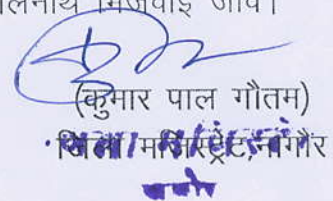 भिजवाई जावे।
(कुमार पाल गौतम)
जिला मजिस्ट्रेट, नागौर